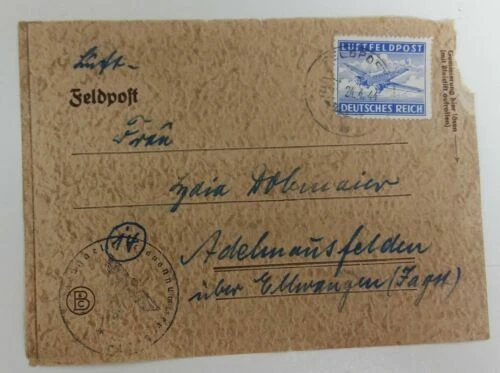 Luft-
Feldpost
LUFTFELDPOST
DEUTSCHES REICH
Gummierung hier lösen
(mit Bleistift aufrollen)
Frau
Lydia Dobmaier
14
Adelmannsfelden
über Ellwangen (Jagst)